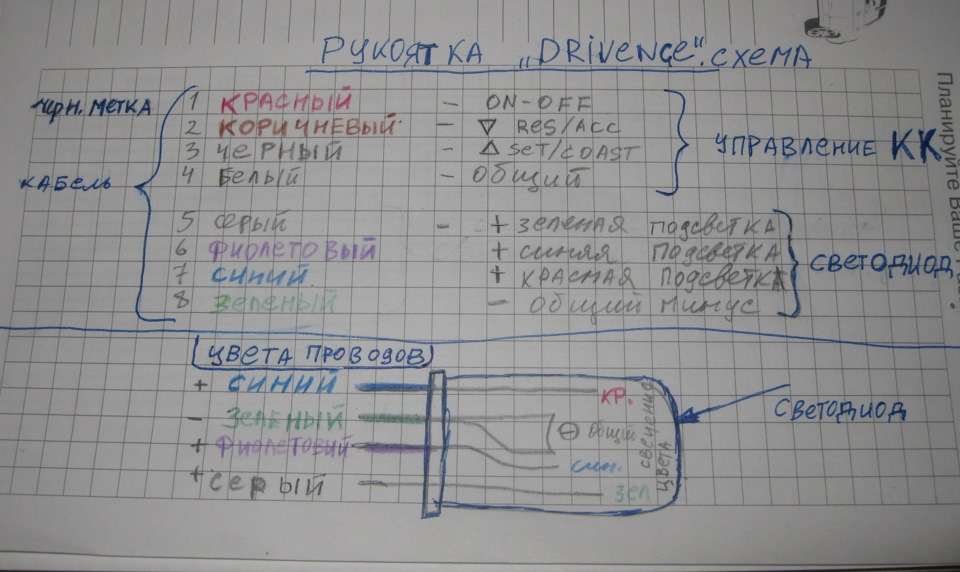 РУКОЯТКА „DRIVENGE". СХЕМА
ЧЕРН. МЕТКА
1 КРАСНЫЙ – ON-OFF
2 КОРИЧНЕВЫЙ – ▽ RES/ACC
3 ЧЕРНЫЙ – △ SET/COAST
4 БЕЛЫЙ – ОБЩИЙ
УПРАВЛЕНИЕ КК
КАБЕЛЬ
5 СЕРЫЙ – + ЗЕЛЕНАЯ ПОДСВЕТКА
6 ФИОЛЕТОВЫЙ + СИНЯЯ ПОДСВЕТКА
7 СИНИЙ + КРАСНАЯ ПОДСВЕТКА
8 ЗЕЛЕНЫЙ – ОБЩИЙ МИНУС
СВЕТОДИОД
ЦВЕТА ПРОВОДОВ
+ СИНИЙ КР.
– ЗЕЛЕНЫЙ ⊖ ОБЩИЙ
+ ФИОЛЕТОВЫЙ СИН.
+ СЕРЫЙ ЗЕЛ
СВЕЧЕНИЕ
ЦВЕТА
СВЕТОДИОД
Планируйте Ваше